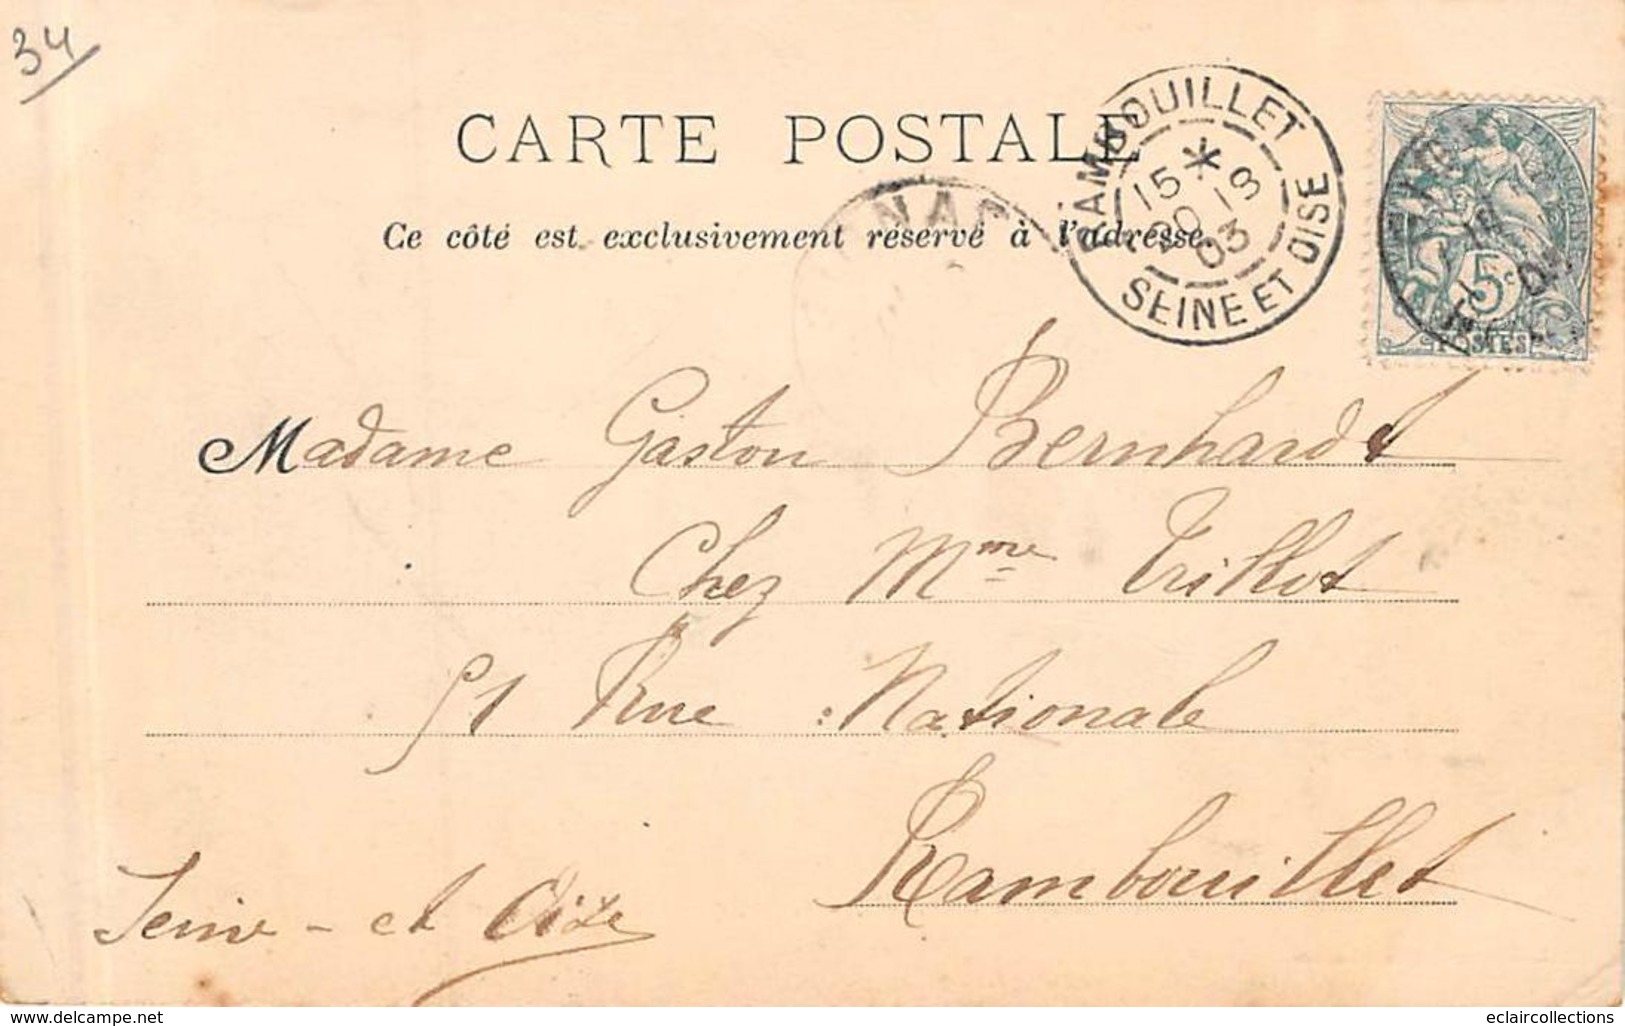 34
CARTE POSTALE
Ce côté est exclusivement réservé à l'adresse.
RAMBOUILLET
15 *
20 18
03
SEINE ET OISE
5c
POSTES
Madame Gaston Bernhardt
Chez Mme Trillot
51 Rue Nationale
Rambouillet
Seine - et Oise
www.delcampe.net
eclaircollections